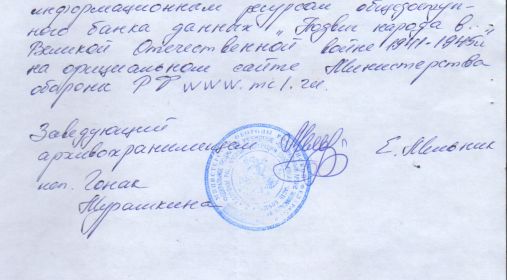 информационном ресурсам общедоступ-
ного банка данных "Подвиг народа в
Великой Отечественной войне 1941-1945гг."
на официальном сайте Министерства
обороны РФ www.mil.ru.
Заведующий
архивохранилищем Е. Мельник
исп. Гонак
Мурашкина